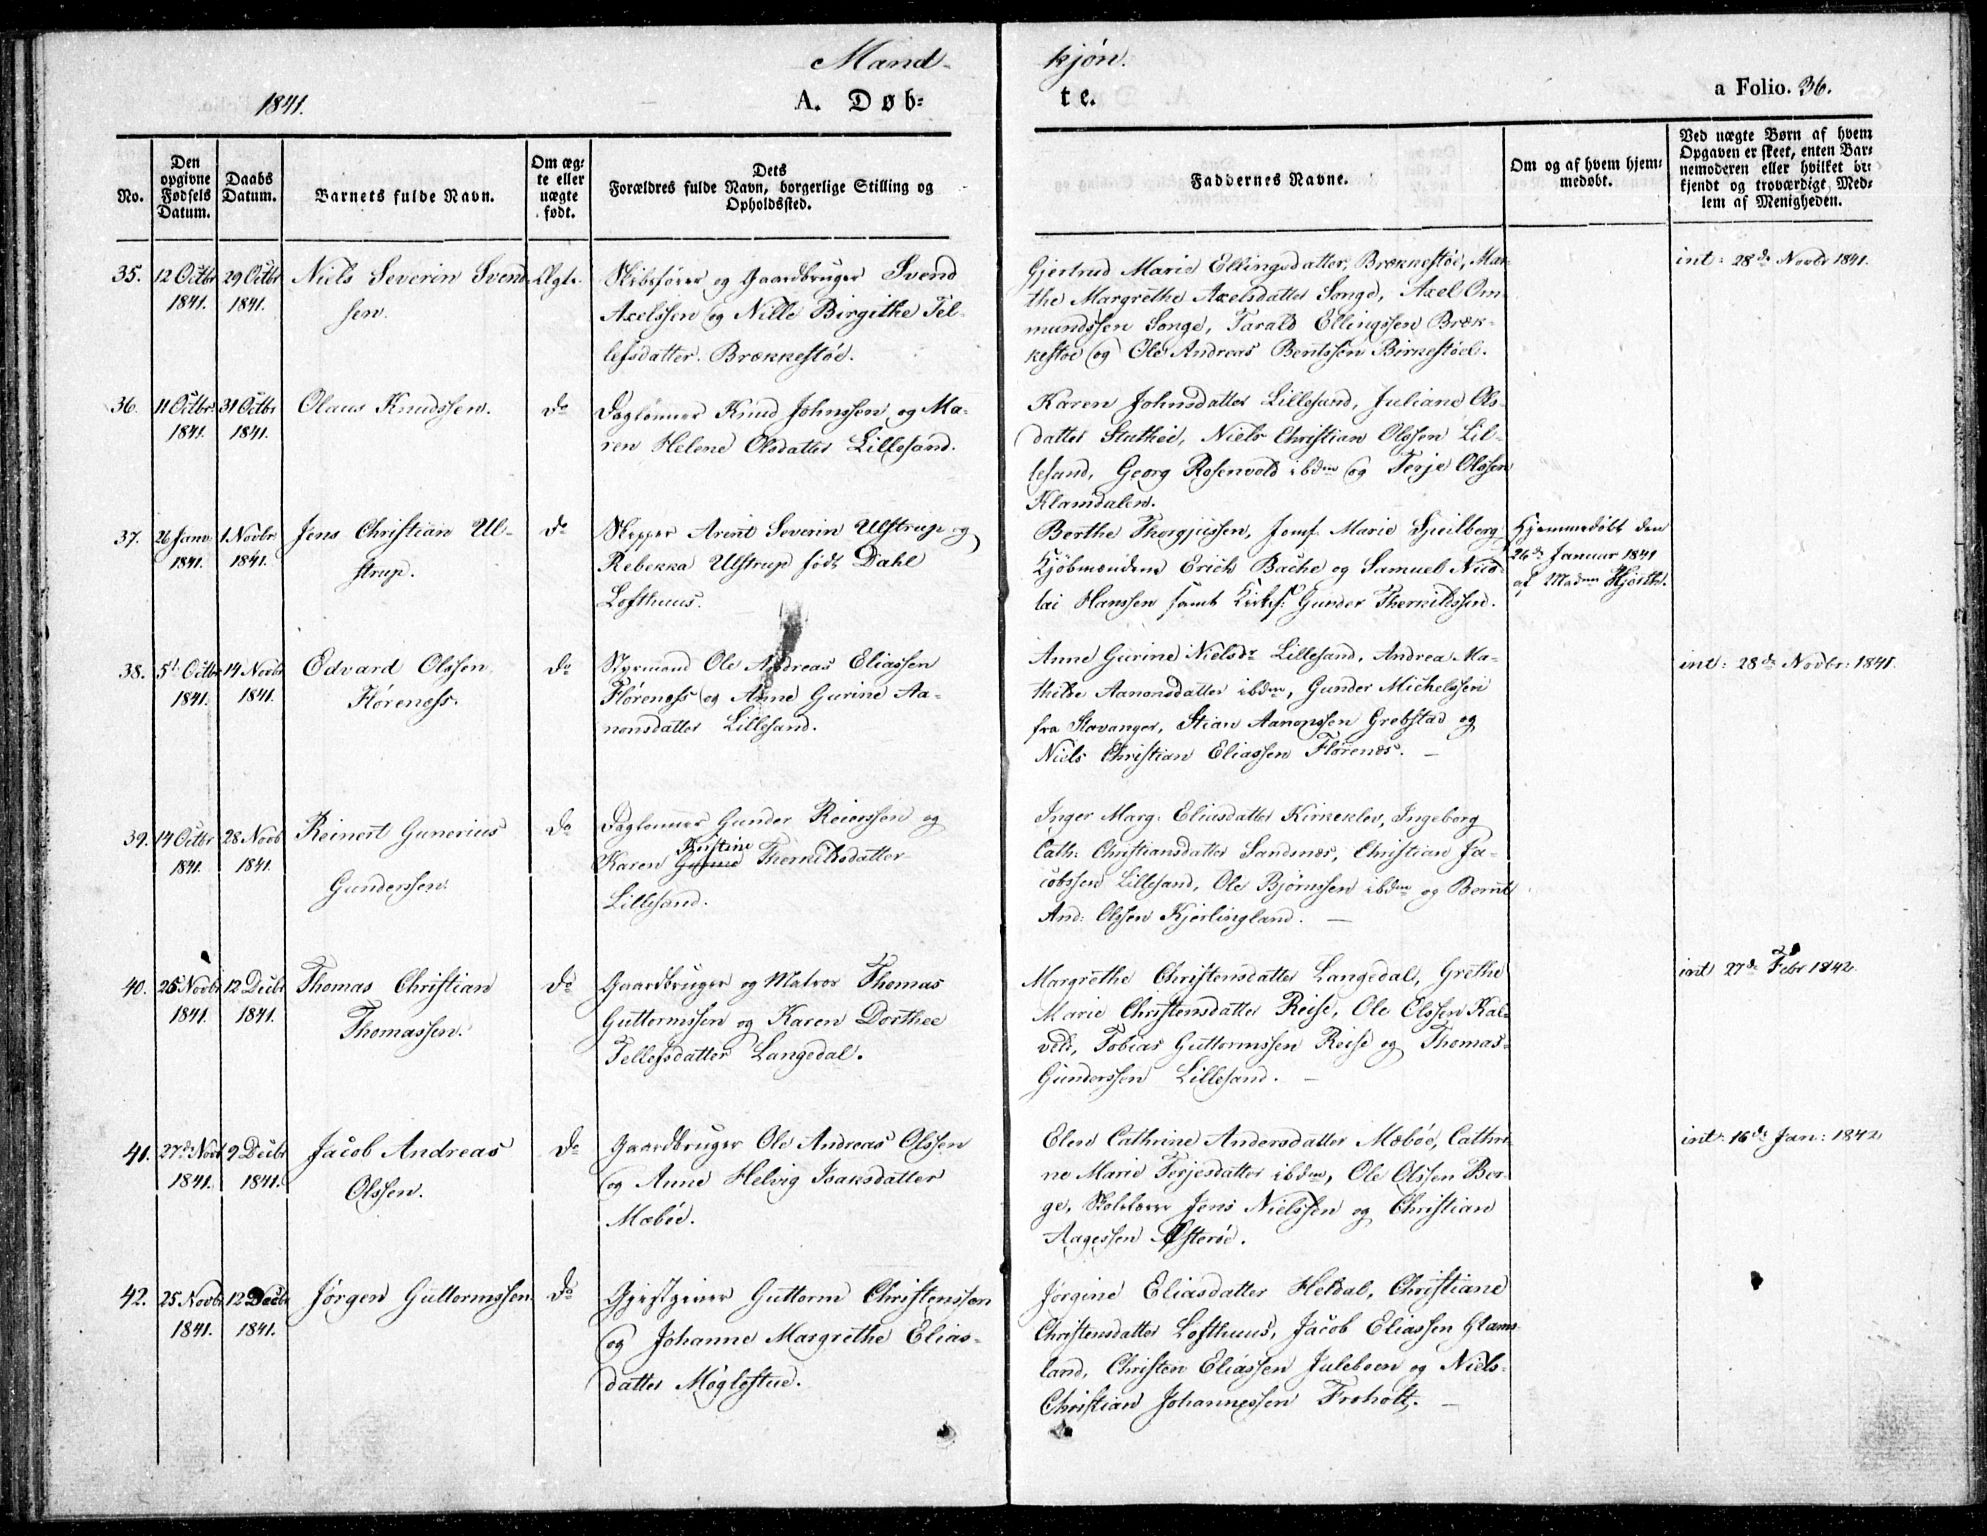 Mand-
kjøn.
1841.
A. Døb-
te.
a Folio. 36.
No.
Den opgivne Fødsels Datum.
Daabs Datum.
Barnets fulde Navn.
Om ægte eller nægte født.
Dets
Forældres fulde Navn, borgerlige Stilling og
Opholdssted.
Faddernes Navne.
Om og af hvem hjem-
medøbt.
Ved nægte Børn af hvem
Opgaven er skeet, enten Bar-
nemoderen eller hvilket be-
kjendt og troværdigt Med-
lem af Menigheden.
35. 12 Octbr 1841. 29 Octbr 1841.
Niels Severin Svend-
sen.
Ægte.
Skibsfører og Gaardbruger Svend
Axelssen og Nille Birgithe Tel-
lefsdatter. Brækkestøe.
Gjertrud Marie Ellingsdatter, Brækkestøe, Mar-
the Margrethe Axelsdatter Songe, Axel Om-
mundssen Songe, Tarald Ellingssen Bræk-
kestøe og Ole Andreas Bentssen Birkestøel.
int: 28de Novbr 1841.
36. 11 Octbr. 1841. 31 Octbr 1841.
Olaus Knudssen.
Do
Daglønner Knud Johnssen og Ma-
ren Helene Olsdatter Lillesand.
Karen Johnsdatter Lillesand, Juliane Ols-
datter Stutheie, Niels Christian Olssen Lil-
lesand, Georg Rosenvold ibdm og Terje Olssen
Klamdalen.
37. 26 Janv 1841. 1 Novbr 1841.
Jens Christian Ul-
strup.
Do
Skipper Arent Severin Ulstrup og
Rebekka Ulstrup født Dahl
Lofthuus.
Berthe Thorgjussen, Jomf. Marie Sjeilberg,
Kjøbmændene Erich Bache og Samuel Nico-
lai Hanssen samt Kirkes: Gunder Therkildssen.
Hjemmedøbt den
26de Januar 1841
af Madm Hjorth.
38. 5t Octbr 1841. 14 Novbr 1841.
Edvard Olssen
Flørenæss.
Do
Styrmand Ole Andreas Eliassen
Flørenæss og Anne Gurine Aa-
nonsdatter Lillesand.
Anne Gurine Nielsdr Lillesand, Andrea Ma-
thilde Aanonsdatter ibdm, Gunder Michelssen
fra Stavanger, Stian Aanonssen Grebstad og
Niels Christian Eliassen Flørenæs. —
int: 28de Novbr: 1841.
39. 14 Octbr 1841. 28 Novb 1841.
Reinert Gunerius
Gunderssen.
Do
Daglønner Gunder Reierssen og
Kirstine
Karen Gurine Therkildsdatter
Lillesand.
Inger Marg: Eliasdatter Kirkeklev, Ingeborg
Cath: Christiansdatter Sandsnæs, Christian Ja-
cobssen Lillesand, Ole Bjørnssen ibdm og Bernt
And: Olssen Kjerlingland. —
40. 25 Novbr 1841. 12 Decbr 1841.
Thomas Christian
Thomassen.
Do
Gaardbruger og Matros Thomas
Guttormssen og Karen Dorthee
Tellefsdatter Langedal.
Margrethe Christensdatter Langedal, Grethe
Marie Christensdatter Reise, Ole Olssen Kal-
vild, Tobias Guttormssen Reise og Thomas
Gunderssen Lillesand. —
int 27de Febr 1842.
41. 27de Novb 1841. 9 Decbr 1841.
Jacob Andreas
Olssen.
Do
Gaardbruger Ole Andreas Olssen
og Anne Helvig Isaksdatter
Mæbøe.
Elen Cathrine Andersdatter Mæbøe, Cathri-
ne Marie Terjesdatter ibdm, Ole Olssen Ber-
ge, Skolelærer Jens Nielssen og Christian
Aagessen Østerøe.
int: 16de Jan: 1842.
42. 25 Novbr 1841. 12 Decbr 1841.
Jørgen Guttormssen
Do
Gjestgiver Guttorm Christenssen
og Johanne Margrethe Elias-
datter Møglestue.
Jørgine Eliasdatter Heldal, Christiane
Christensdatter Lofthuus, Jacob Eliassen Glams-
land, Christen Eliassen Juleboen og Niels
Christian Johannessen Froholt. —